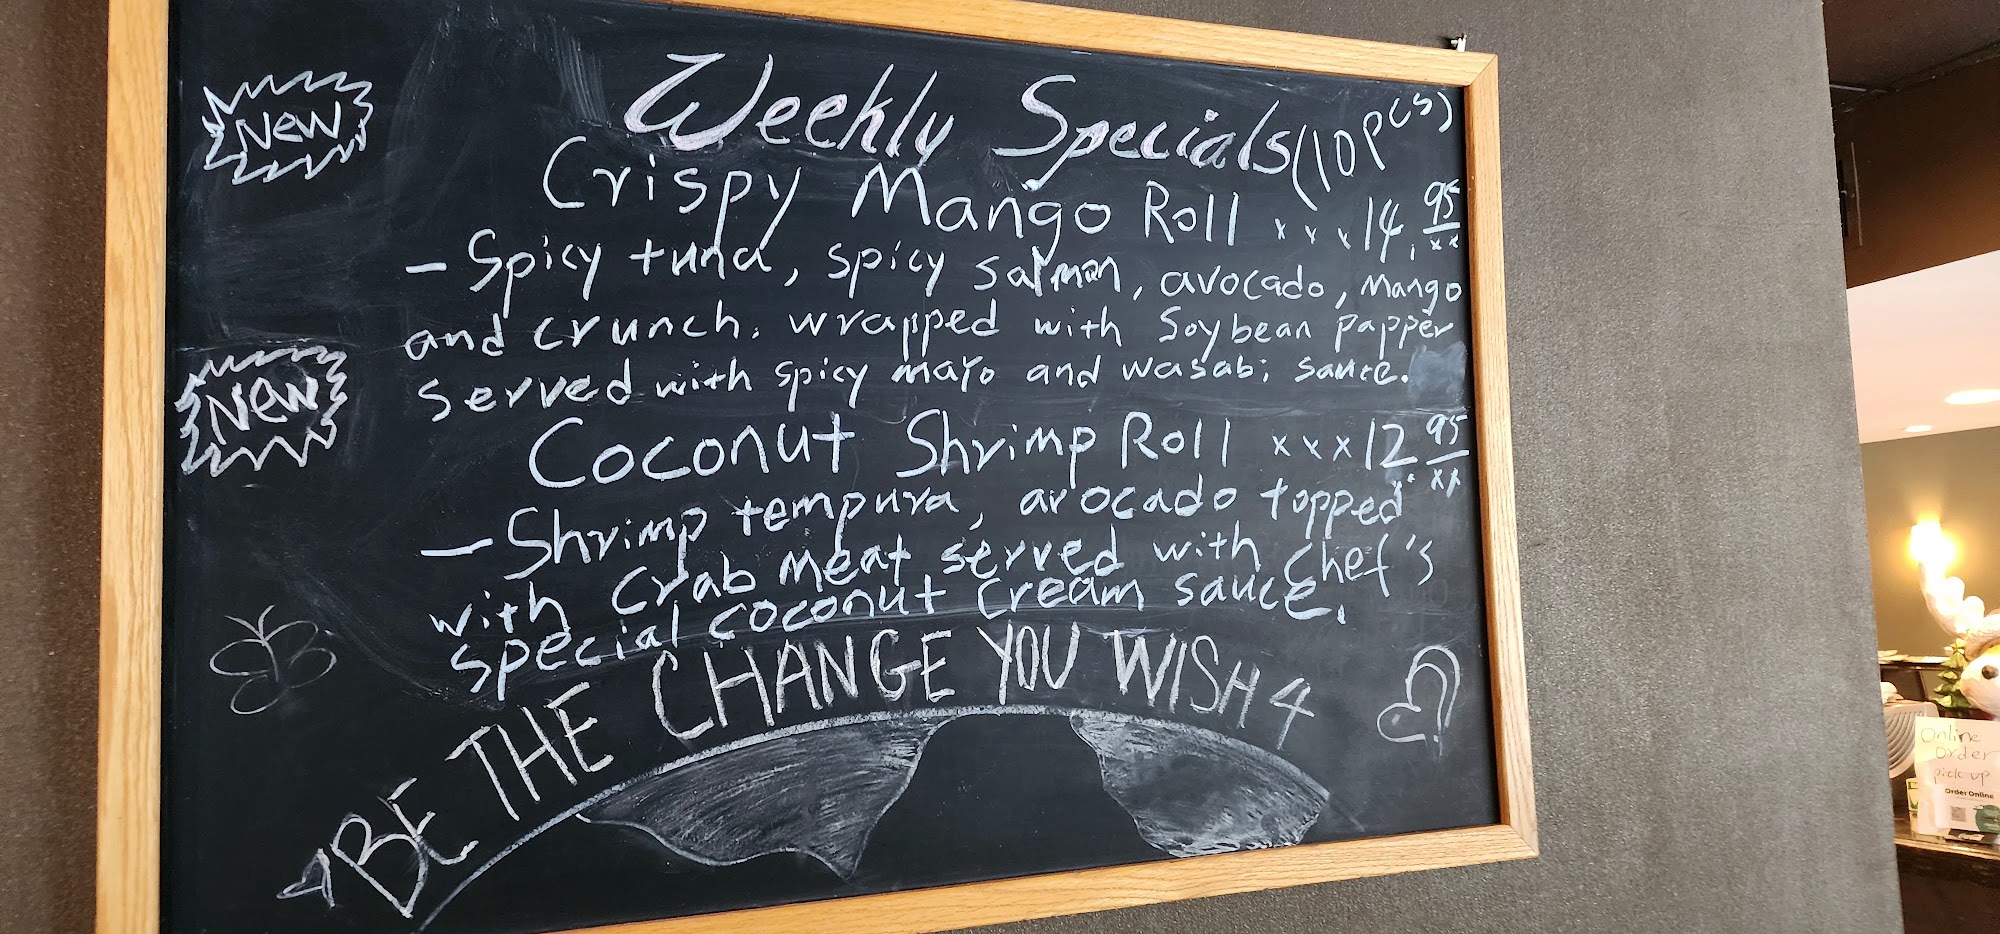 New
Weekly Specials (10pcs)
Crispy Mango Roll xxx 14.95
xx
- Spicy tuna, spicy salmon, avocado, mango
and crunch. wrapped with Soybean papper
served with spicy mayo and wasabi sauce.
New
Coconut Shrimp Roll xxx 12.95
xx
- Shrimp tempura, avocado topped
with Crab meat served with chef's
special coconut cream sauce.
BE THE CHANGE YOU WISH 4
Online
order
pick up
Order Online